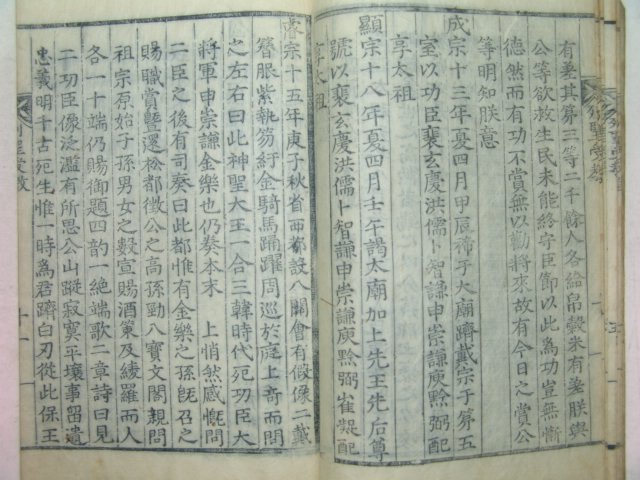 有差其第三等二千餘人各給帛穀米有差朕與
公等欲救生民未能終守臣節以此為功豈無慚
德然而有功不賞無以勸將來故有今日之賞公
等明知朕意
成宗十三年夏四月甲辰禘于大廟躋戴宗于第五
室以功臣裵玄慶洪儒卜智謙申崇謙庾黔弼配
享太祖
顯宗十八年夏四月壬午謁太廟加上先王先后尊
號以裵玄慶洪儒卜智謙申崇謙庾黔弼崔凝配
享太祖
睿宗十五年庚子秋省西都設八關會有假像二戴
簪服紫執笏紆金騎馬踊躍周巡於庭上奇而問
之左右曰此神聖大王一合三韓時代死功臣大
將軍申崇謙金樂也仍奏本末 上悄然感慨問
二臣之後有司奏曰此都惟有金樂之孫旣召之
賜職賞曁還松都徵公之高孫勁八寶文閣親問
祖宗原始子孫男女之數宣賜酒菓及綾羅而人
各一十端仍賜御題四韵一絶端歌二章詩曰見
二功臣像汎濫有所思公山蹤寂寞平壤事留遺
忠義明千古死生惟一時爲君躋白刃從此保王